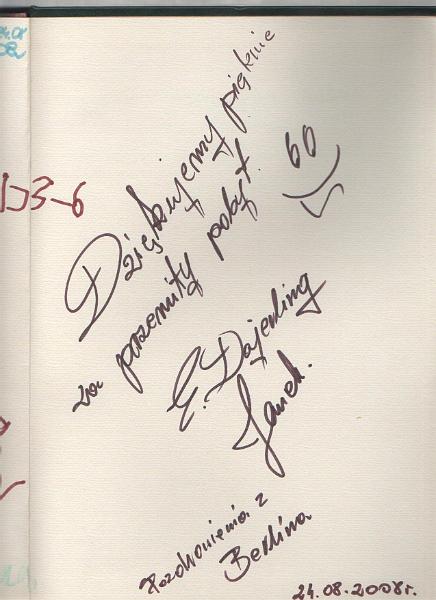 Dziękujemy pięknie
za przemiły pobyt.
E. Dajerling
Janek.
Pozdrowienia z
Berlina
24.08.2008r.
3-6